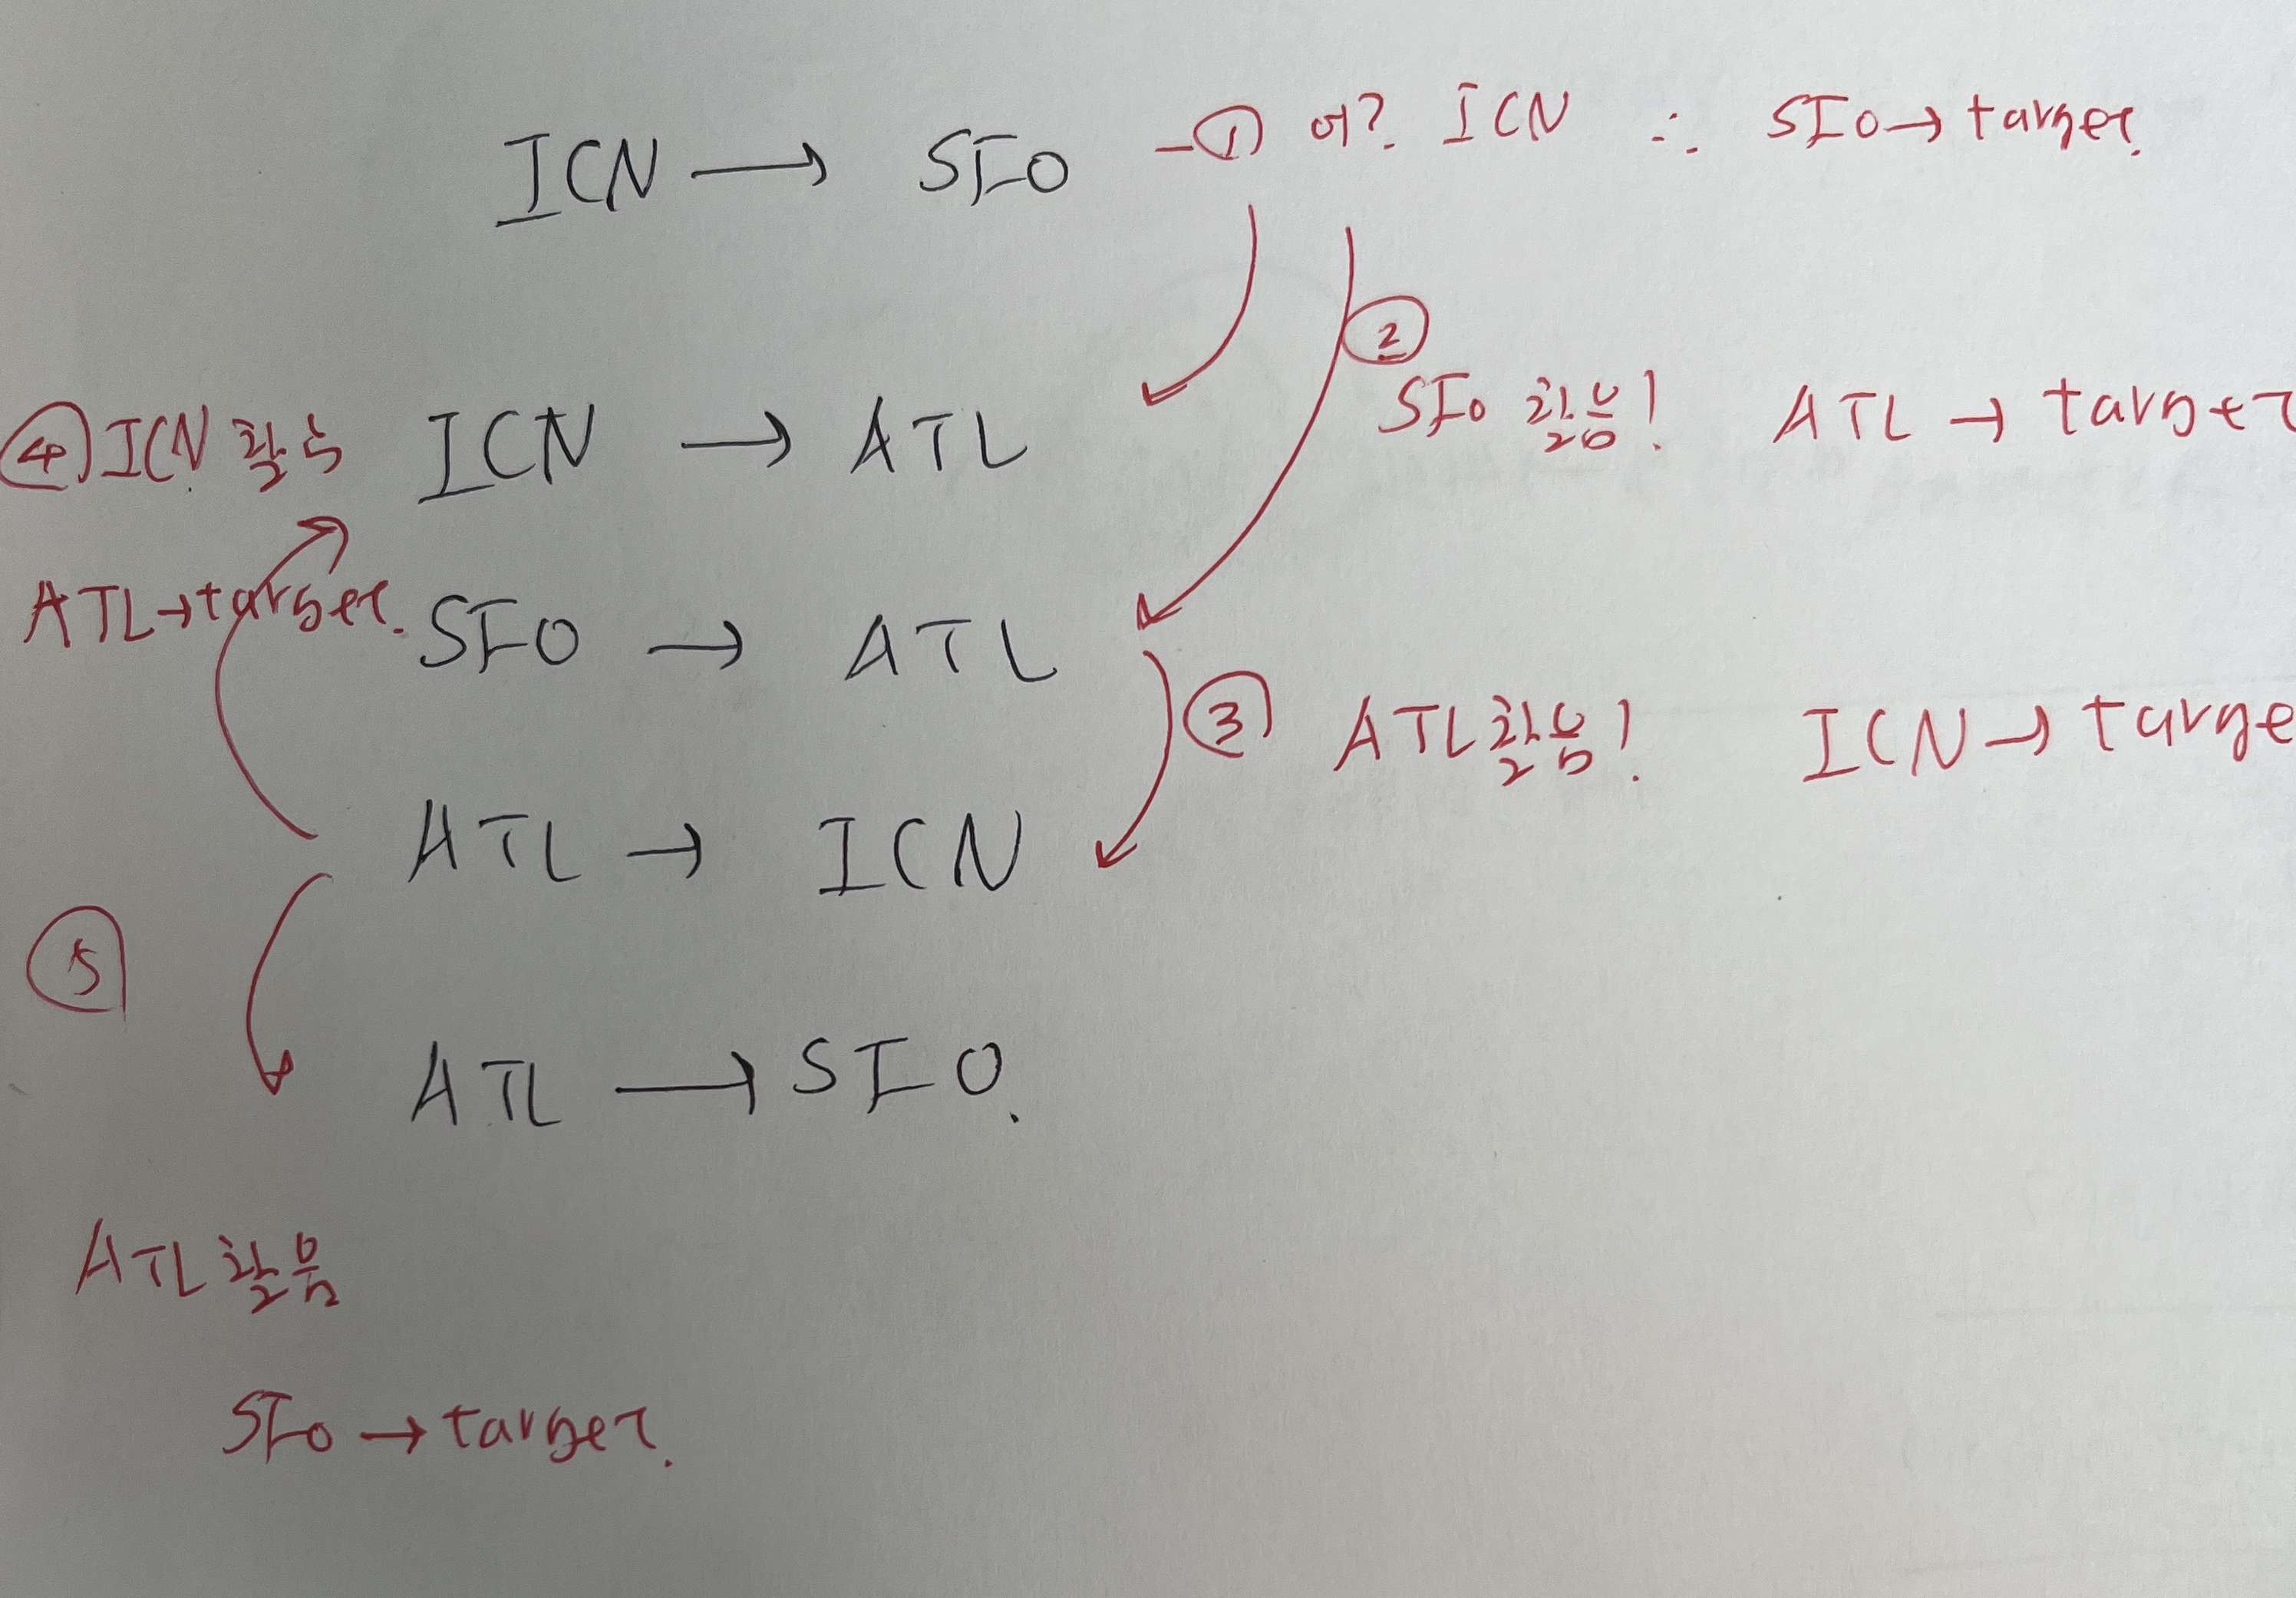 ICN → SFO - ① 어? ICN ∴ SFO → target.
②
SFO 활용! ATL → target
④ ICN 활용 ICN → ATL
ATL → target. SFO → ATL
③ ATL 활용! ICN → targe
ATL → ICN
⑤
ATL → SFO.
ATL 활용
SFO → target.